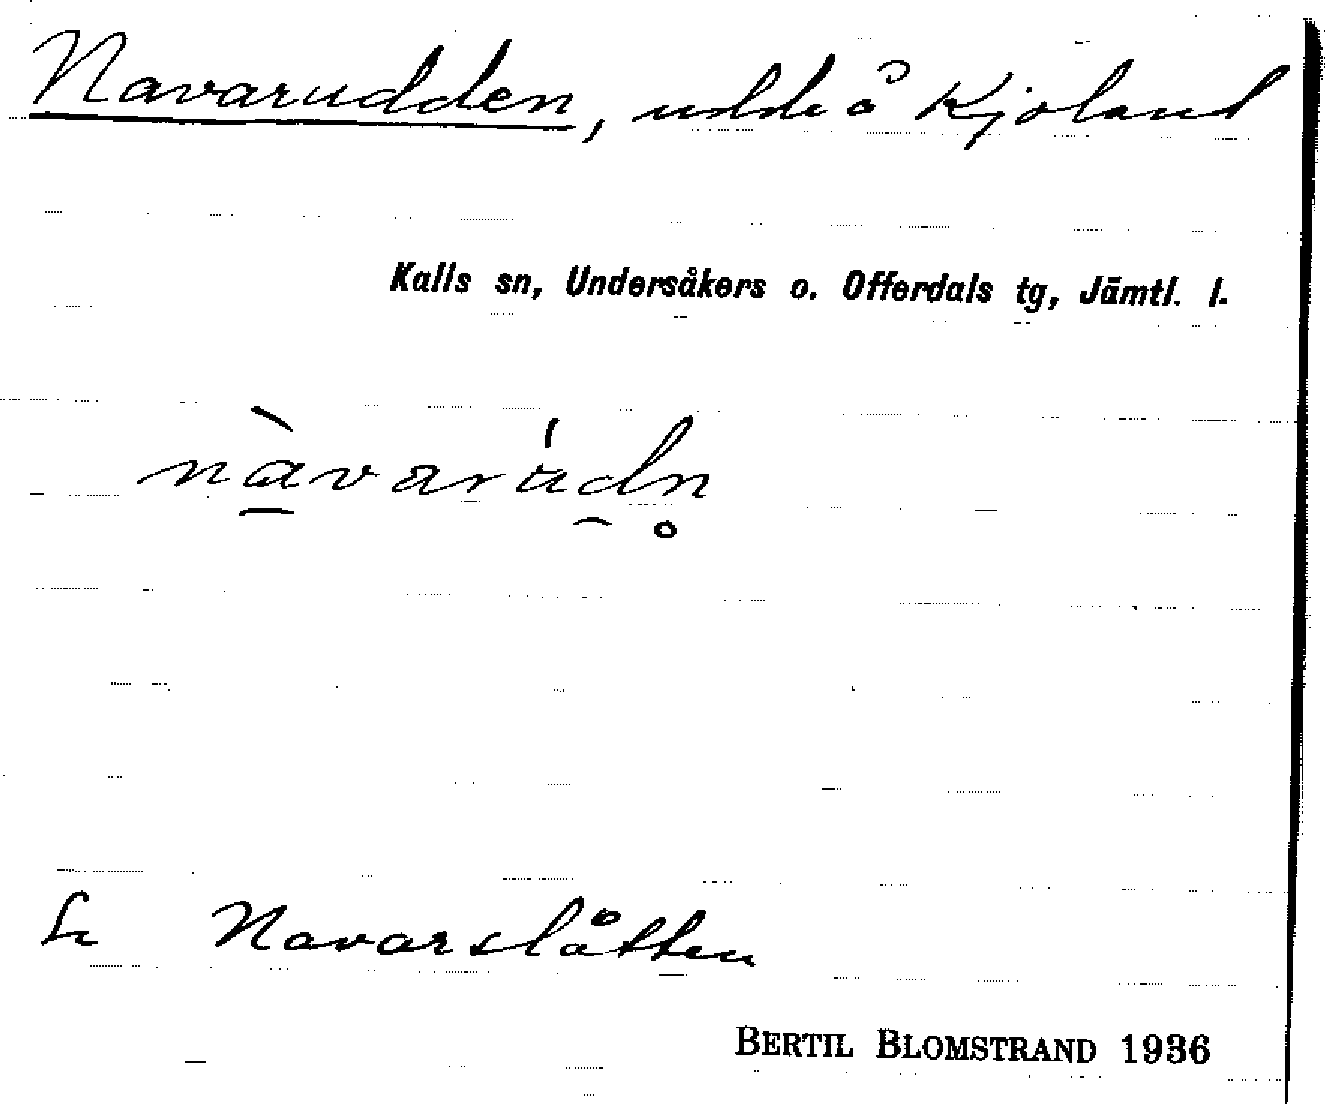 Navarudden, udde å Kjoland
Kalls sn, Undersåkers o. Offerdals tg, Jämtl. l.
nàvarúdn̥
Se Navarslåtten
BERTIL BLOMSTRAND 1936